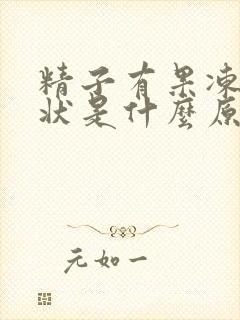 精子有果凍
狀是什麼原
元如一